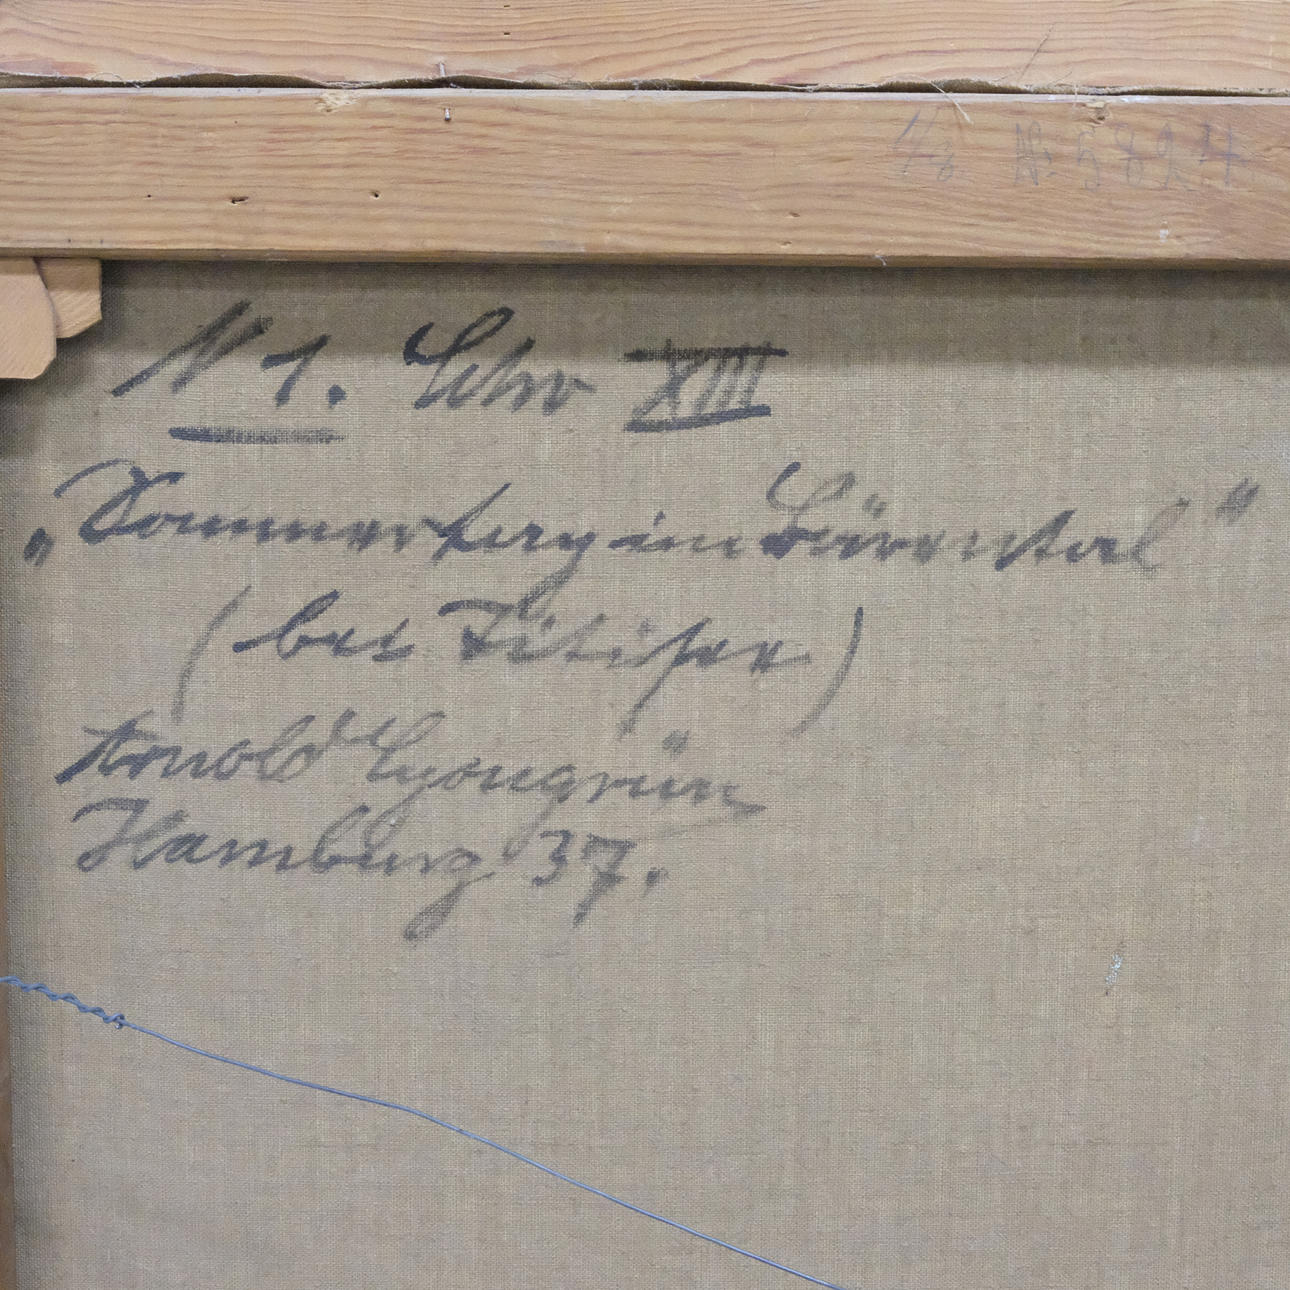 № 5824
N 1. Schw XIII
„Sommertag im Bärental"
(bei Titisee)
Arnold Lyongrün
Hamburg 37.